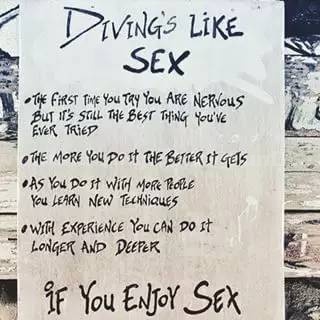 DIVING'S LIKE
SEX
•THE FIRST TIME YOU TRY YOU ARE NERVOUS
BUT IT'S STILL THE BEST THING YOU'VE
EVER TRIED
•THE MORE YOU DO IT THE BETTER IT GETS
•AS YOU DO IT WITH MORE PEOPLE
YOU LEARN NEW TECHNIQUES
•WITH EXPERIENCE YOU CAN DO IT
LONGER AND DEEPER
IF YOU ENJOY SEX